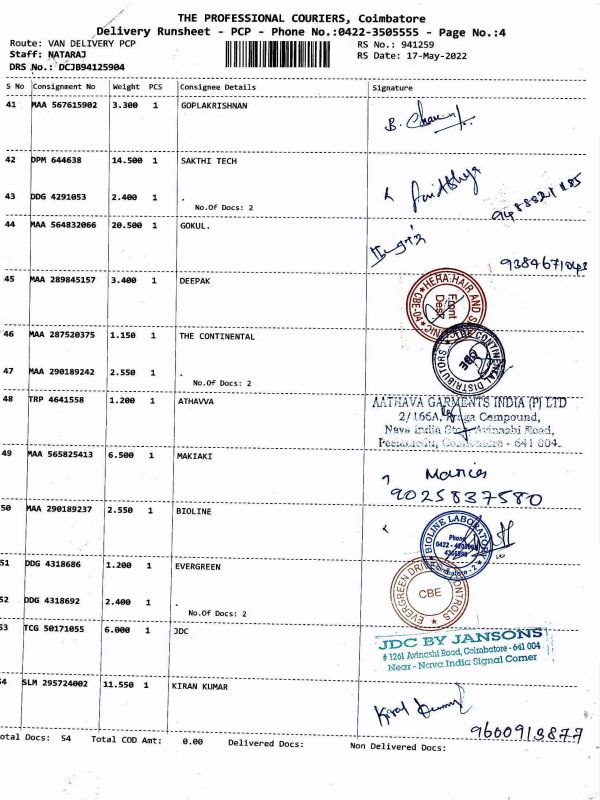 THE PROFESSIONAL COURIERS, Coimbatore
Delivery Runsheet - PCP - Phone No.:0422-3505555 - Page No.:4
Route: VAN DELIVERY PCP RS No.: 941259
Staff: NATARAJ RS Date: 17-May-2022
DRS No.: DCJB94125904
S No Consignment No Weight PCS Consignee Details Signature
41 MAA 567615902 3.300 1 GOPLAKRISHNAN
42 DPM 644638 14.500 1 SAKTHI TECH
43 DDG 4291053 2.400 1 .
No.Of Docs: 2
44 MAA 564832066 20.500 1 GOKUL.
45 MAA 289845157 3.400 1 DEEPAK
HERA HAIR AND
Front Desk
46 MAA 287520375 1.150 1 THE CONTINENTAL
THE CONTINENTAL DISTRIBUTORS
CBE
47 MAA 290189242 2.550 1 .
No.Of Docs: 2
48 TRP 4641558 1.200 1 ATHAVVA
AATHAVA GARMENTS INDIA (P) LTD
2/166A, Compound,
Nava India Avinashi Road,
Coimbatore - 641 004.
49 MAA 565825413 6.500 1 MAKIAKI
9025837580
50 MAA 290189237 2.550 1 BIOLINE
BIOLINE LABORATORY
Phone
0422 -
Coimbatore - 2
51 DDG 4318686 1.200 1 EVERGREEN
EVERGREEN CONTROLS
CBE
52 DDG 4318692 2.400 1 .
No.Of Docs: 2
53 TCG 50171055 6.000 1 JDC
JDC BY JANSONS
# 1261 Avinashi Road, Coimbatore - 641 004
Near - Nava India Signal Corner
54 SLM 295724002 11.550 1 KIRAN KUMAR
9600913877
otal Docs: 54 Total COD Amt: 0.00 Delivered Docs: Non Delivered Docs: